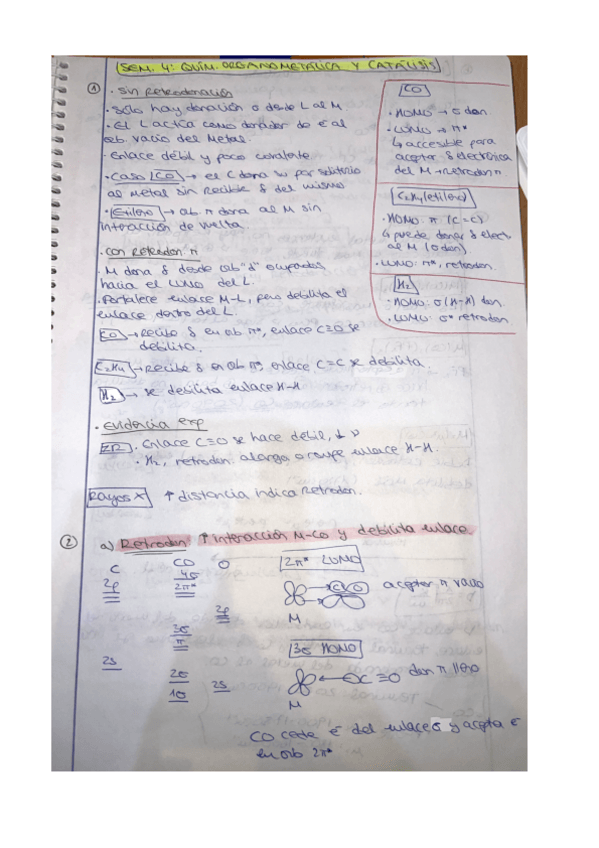 SEM. 4: QUÍM. ORGANOMETÁLICA Y CATÁLISIS
① · Sin Retrodonación
· Sólo hay donación σ desde L al M
· El L actúa como donador de ē al
orb. vacío del Metal.
· Enlace débil y poco covalente.
· Caso CO → el C dona su par solitario
al metal sin recibir δ del mismo
· Etileno → orb. π dona al M sin
interacción de vuelta.
· con retrodon. π
· M dona δ desde orb "d" ocupados
hacia el LUMO del L.
· Fortalece enlace M-L, pero debilita el
enlace dentro del L.
CO → Recibe δ en orb π*, enlace C≡O se
debilita.
C₂H₄ → Recibe δ en orb π*, enlace C=C se debilita
H₂ → se debilita enlace H-H
· Evidencia exp
IR · Enlace C≡O se hace débil, ↓ ν
· H₂, retrodon. alarga o rompe enlace H-H.
Rayos X ↑ distancia indica Retrodon.
CO
· HOMO → σ don.
· LUMO → π*
↳ accesible para
aceptar δ electrónica
del M → retrodon π.
C₂H₄ (etileno)
· HOMO: π (C=C)
↳ puede donar δ elect
al M (σ don)
· LUMO: π*, retrodon.
H₂
· HOMO: σ (H-H) don.
· LUMO: σ* retrodon.
② a) Retrodon ↑ interacción M-CO y debilita enlace.
C CO O
4σ
2p 2π*
2p
3σ
π
2s
2σ 2s
1σ
2π* LUMO
C O aceptor π vacío
M
3σ HOMO
C≡O don π lleno
M
CO cede ē del enlace σ y acepta ē
en orb 2π*